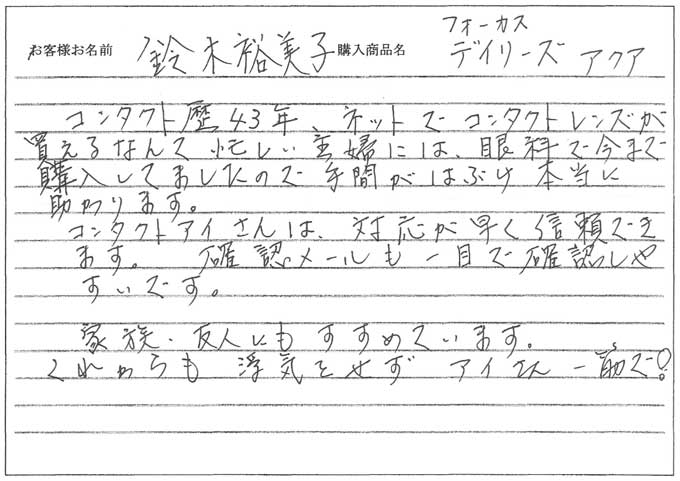 お客様お名前 鈴木裕美子 購入商品名 フォーカス
デイリーズ アクア
コンタクト歴43年、ネットでコンタクトレンズが
買えるなんて忙しい主婦には、眼科で今まで
購入してましたので手間がはぶけ本当に
助かります。
コンタクトアイさんは、対応が早く信頼でき
ます。 確認メールも一目で確認しや
すいです。
家族・友人にもすすめています。
これからも浮気をせず アイさん一筋で!